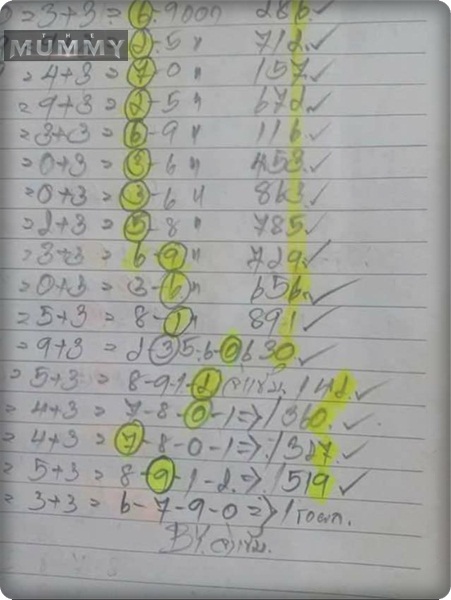 = 3+3 = 6-9ออก 286✓
MUMMY
2-5 " 712✓
= 4+3 = 7-0 " 157✓
= 9+3 = 2-5 " 672✓
= 3+3 = 6-9 " 116✓
= 0+3 = 3-6 " 453✓
= 0+3 = 3-6 " 863✓
= 2+3 = 5-8 " 785✓
= 3+3 = 6-9 " 729✓
= 0+3 = 3-6 " 656✓
= 5+3 = 8-1 " 891✓
= 9+3 = 2 3 5.6-0 630✓
= 5+3 = 8-9-1-2 142✓
= 4+3 = 7-8-0-1=> 1360✓
= 4+3 = 7-8-0-1=> 1387✓
= 5+3 = 8-9-1-2=> 1519✓
= 3+3 = 6-7-9-0=>
BY.